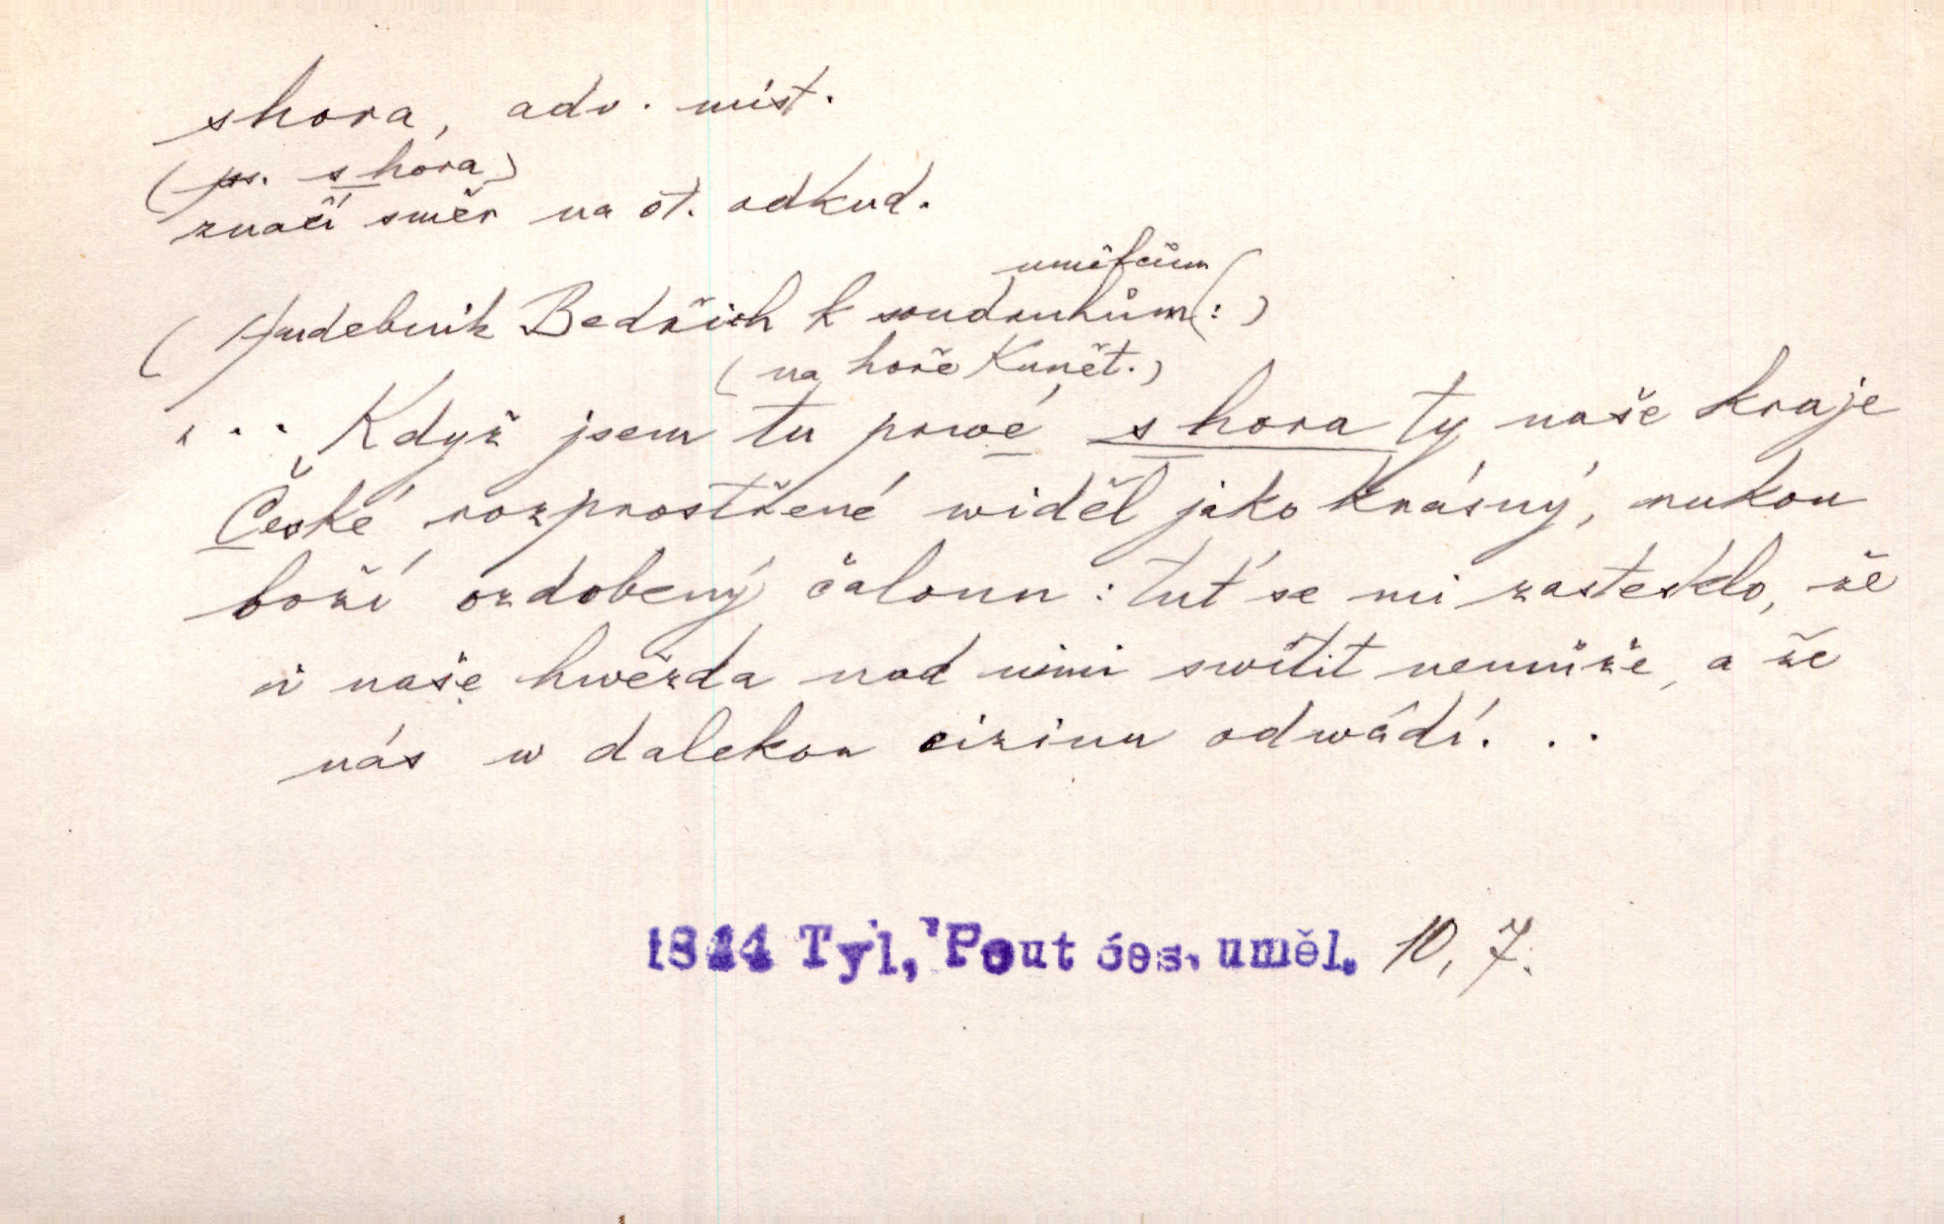 shora, adv. míst.
(ps. s hora)
značí směr na ot. odkud.
umělcům
(Hudebník Bedřich k soudruhům(:)
(na hoře Kunět.)
... Když jsem tu prwé s hora ty naše kraje
České rozprostřené widěl jako krásný, rukou
boží ozdobený čaloun: tuť se mi zastesklo, že
i naše hwězda nad nimi swítit nemůže, a že
nás w dalekou cizinu odwádí...
1844 Tyl, Pout čes. uměl. 10, 7.